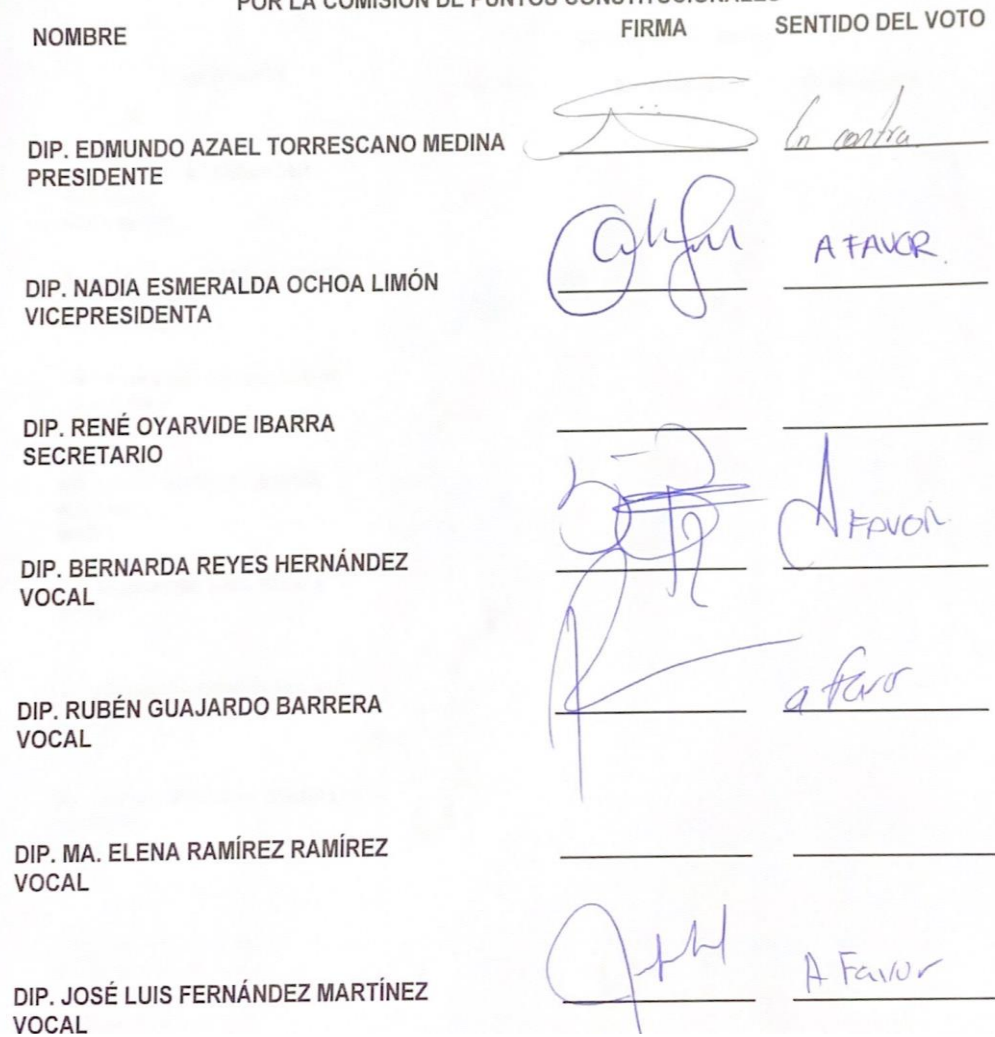 POR LA COMISIÓN DE PUNTOS CONSTITUCIONALES
NOMBRE FIRMA SENTIDO DEL VOTO
DIP. EDMUNDO AZAEL TORRESCANO MEDINA En contra
PRESIDENTE
DIP. NADIA ESMERALDA OCHOA LIMÓN A FAVOR.
VICEPRESIDENTA
DIP. RENÉ OYARVIDE IBARRA
SECRETARIO
DIP. BERNARDA REYES HERNÁNDEZ A FAVOR
VOCAL
DIP. RUBÉN GUAJARDO BARRERA a favor
VOCAL
DIP. MA. ELENA RAMÍREZ RAMÍREZ
VOCAL
DIP. JOSÉ LUIS FERNÁNDEZ MARTÍNEZ A Favor
VOCAL